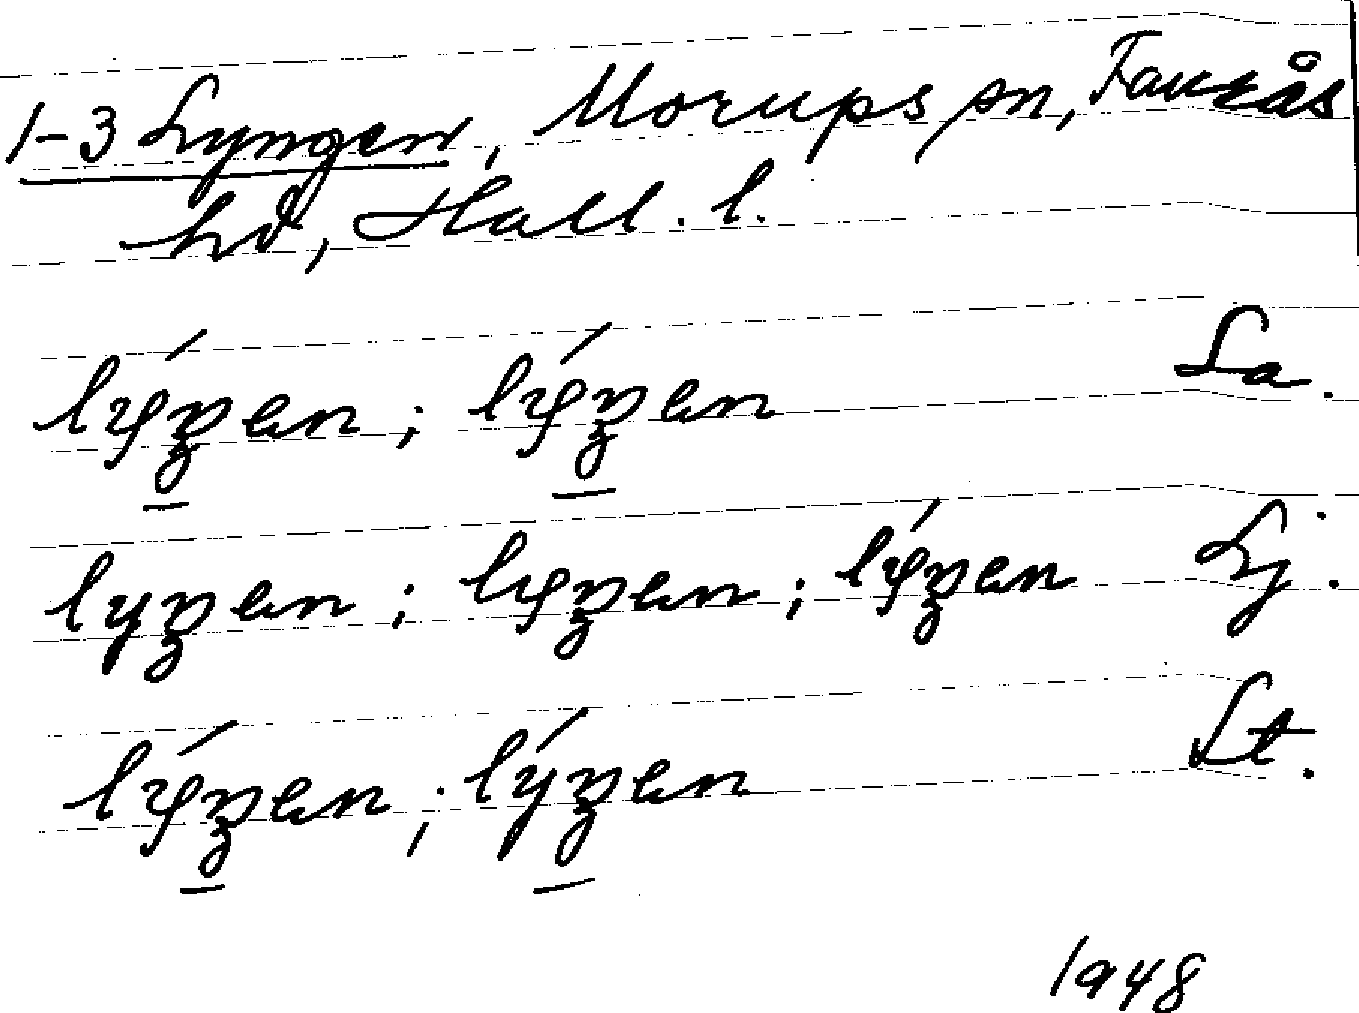 1-3 Lyngen, Morups sn, Faurås
hd, Hall. l.
lýŋen; lýŋen La.
lyŋen; lyŋen; lýŋen Lj.
lýŋen; lýŋen Lt.
1948